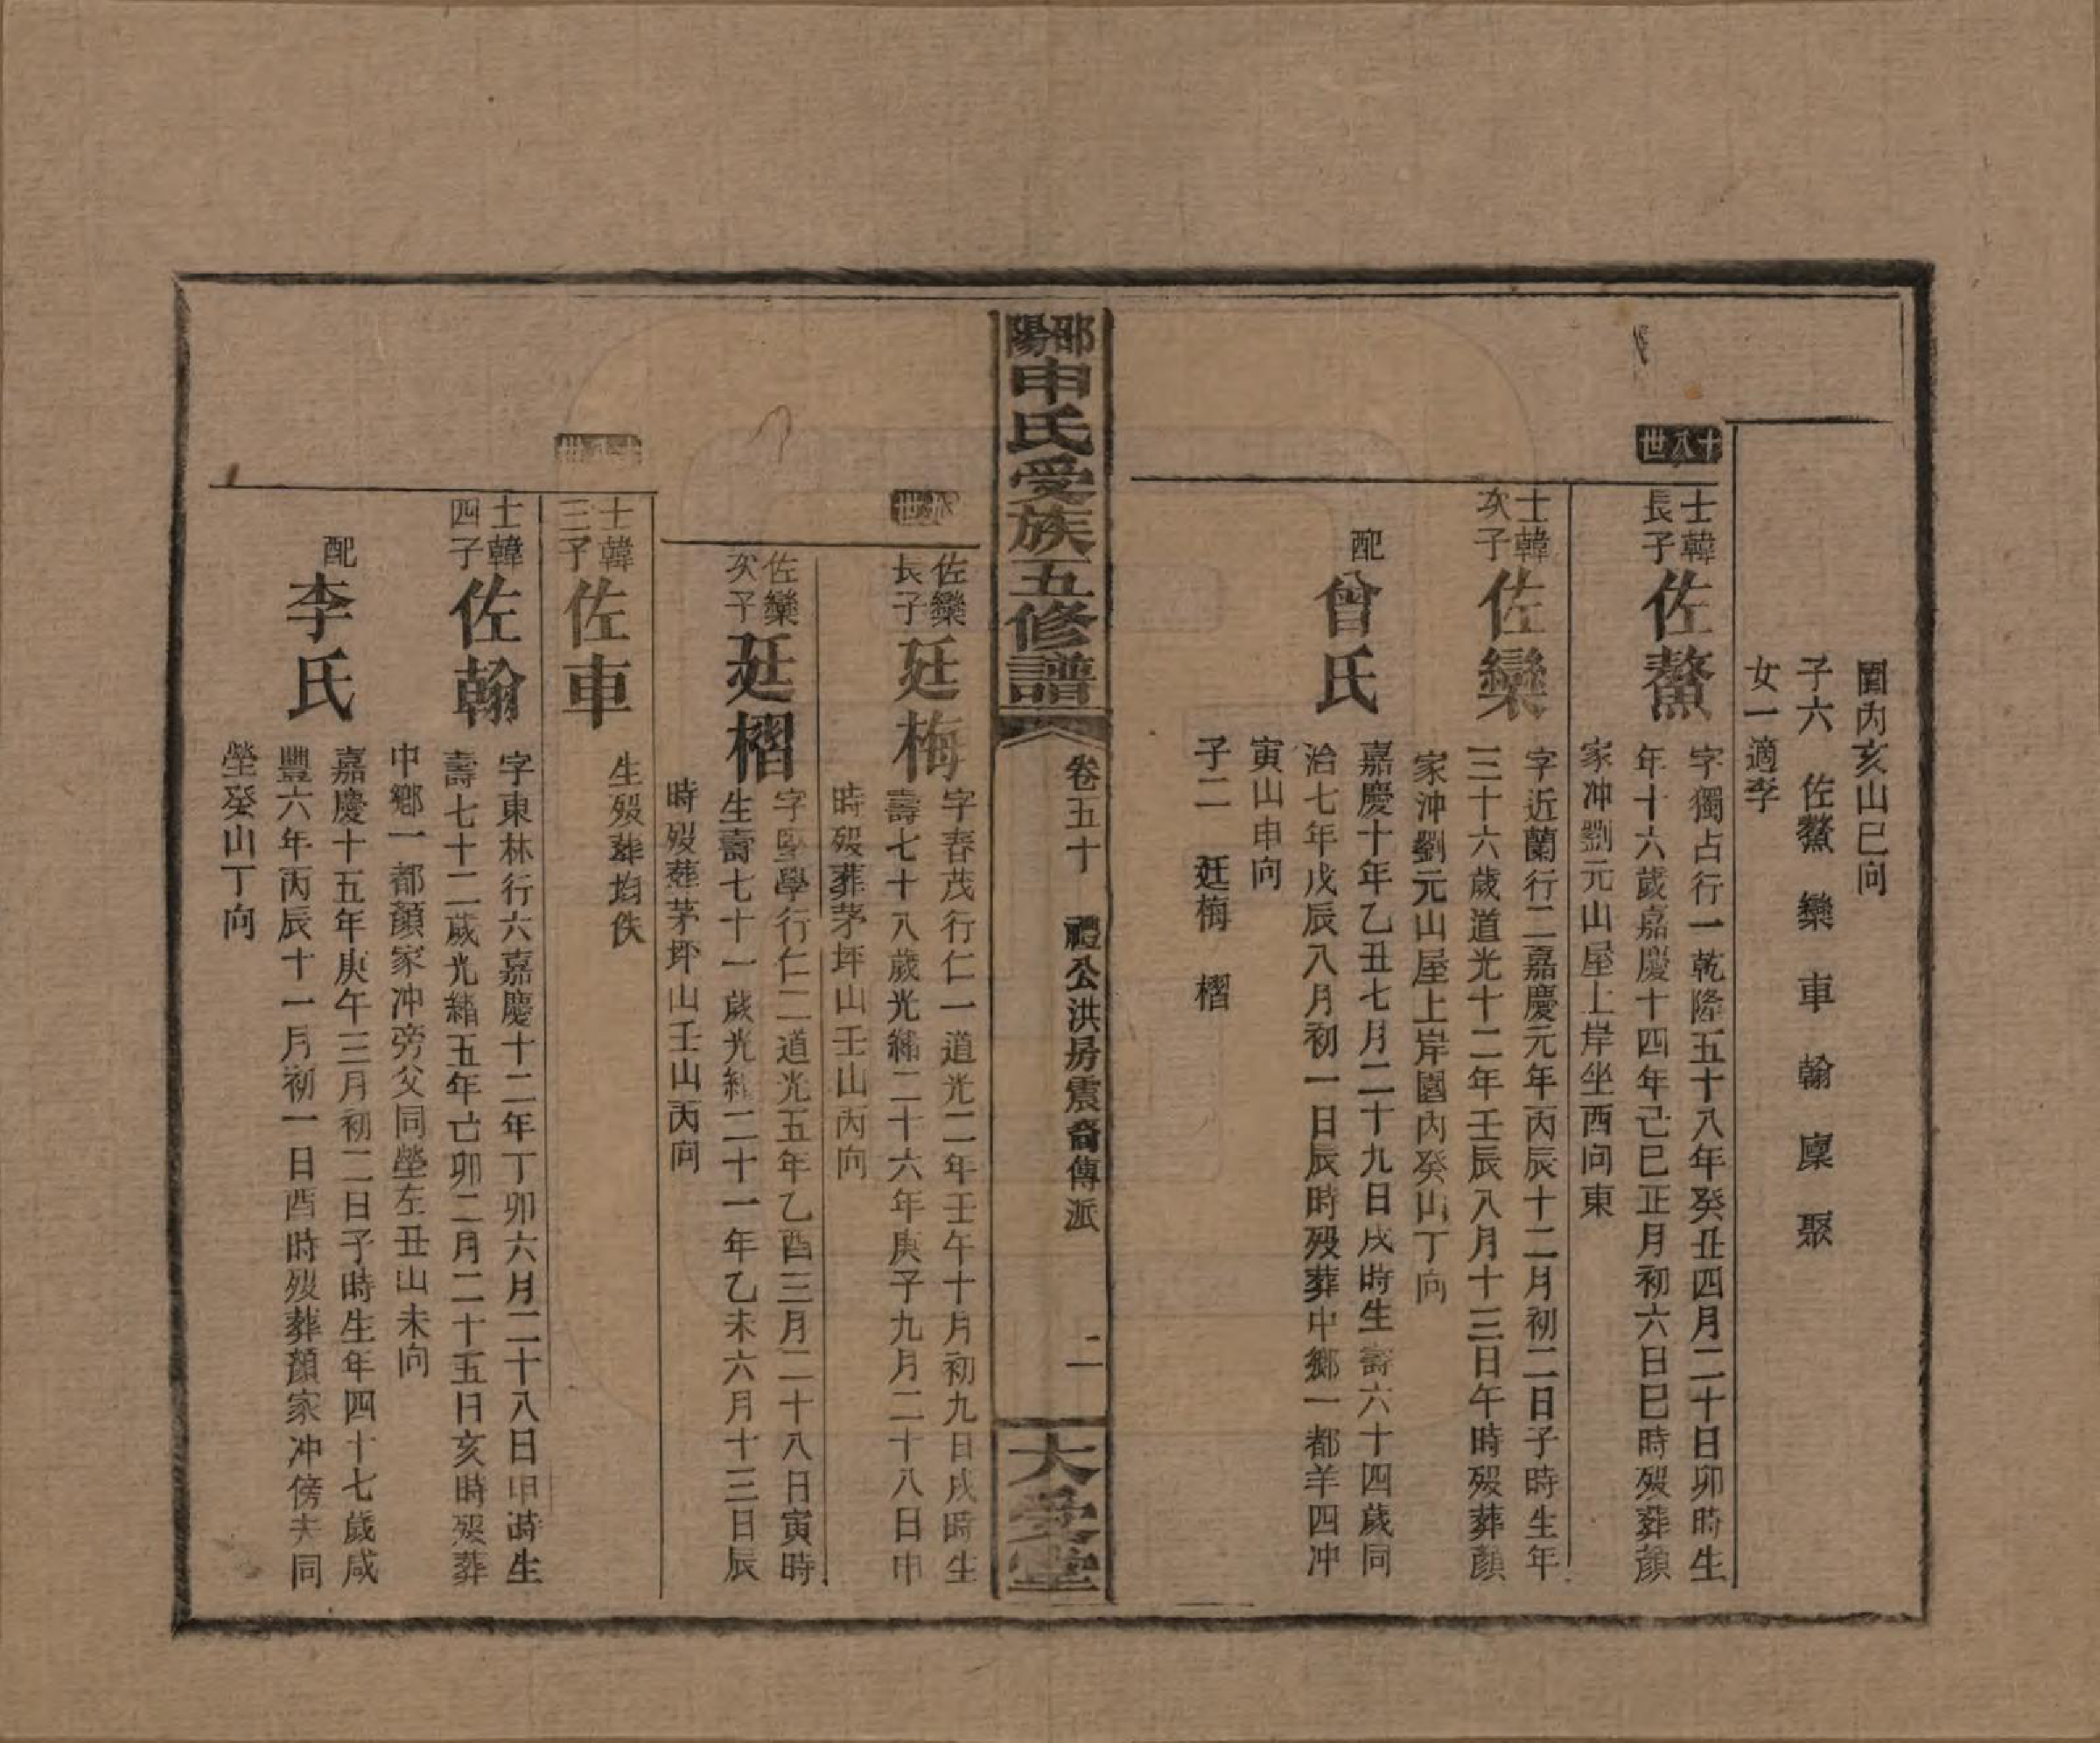 園內亥山巳向
子六 佐鰲 欒 車 翰 廩 聚
女一適李
十八世
士韓長子
佐鰲
字獨占行一乾隆五十八年癸丑四月二十日卯時生
年十六歲嘉慶十四年己巳正月初六日巳時歿葬顏
家冲劉元山屋上岸坐西向東
士韓次子
佐欒
字近蘭行二嘉慶元年丙辰十二月初二日子時生年
三十六歲道光十二年壬辰八月十三日午時歿葬顏
家沖劉元山屋上岸園內癸山丁向
配
曾氏
嘉慶十年乙丑七月二十九日戌時生壽六十四歲同
治七年戊辰八月初一日辰時歿葬中鄉一都羊四冲
寅山申向
子二 廷梅 槢
邵陽申氏受族五修譜
卷五十 禮公洪房震裔傳派 二
大受堂
世
佐欒長子
廷梅
字春茂行仁一道光二年壬午十月初九日戌時生
壽七十八歲光緒二十六年庚子九月二十八日申
時歿葬茅坪山壬山丙向
佐欒次子
廷槢
字堅學行仁二道光五年乙酉三月二十八日寅時
生壽七十一歲光緒二十一年乙未六月十三日辰
時歿葬茅坪山壬山丙向
十八世
士韓三子
佐車
生歿葬均佚
士韓四子
佐翰
字東林行六嘉慶十二年丁卯六月二十八日申時生
壽七十二歲光緒五年己卯二月二十五日亥時歿葬
中鄉一都顏家冲旁父同塋左丑山未向
配
李氏
嘉慶十五年庚午三月初二日子時生年四十七歲咸
豐六年丙辰十一月初一日酉時歿葬顏家冲傍夫同
塋癸山丁向